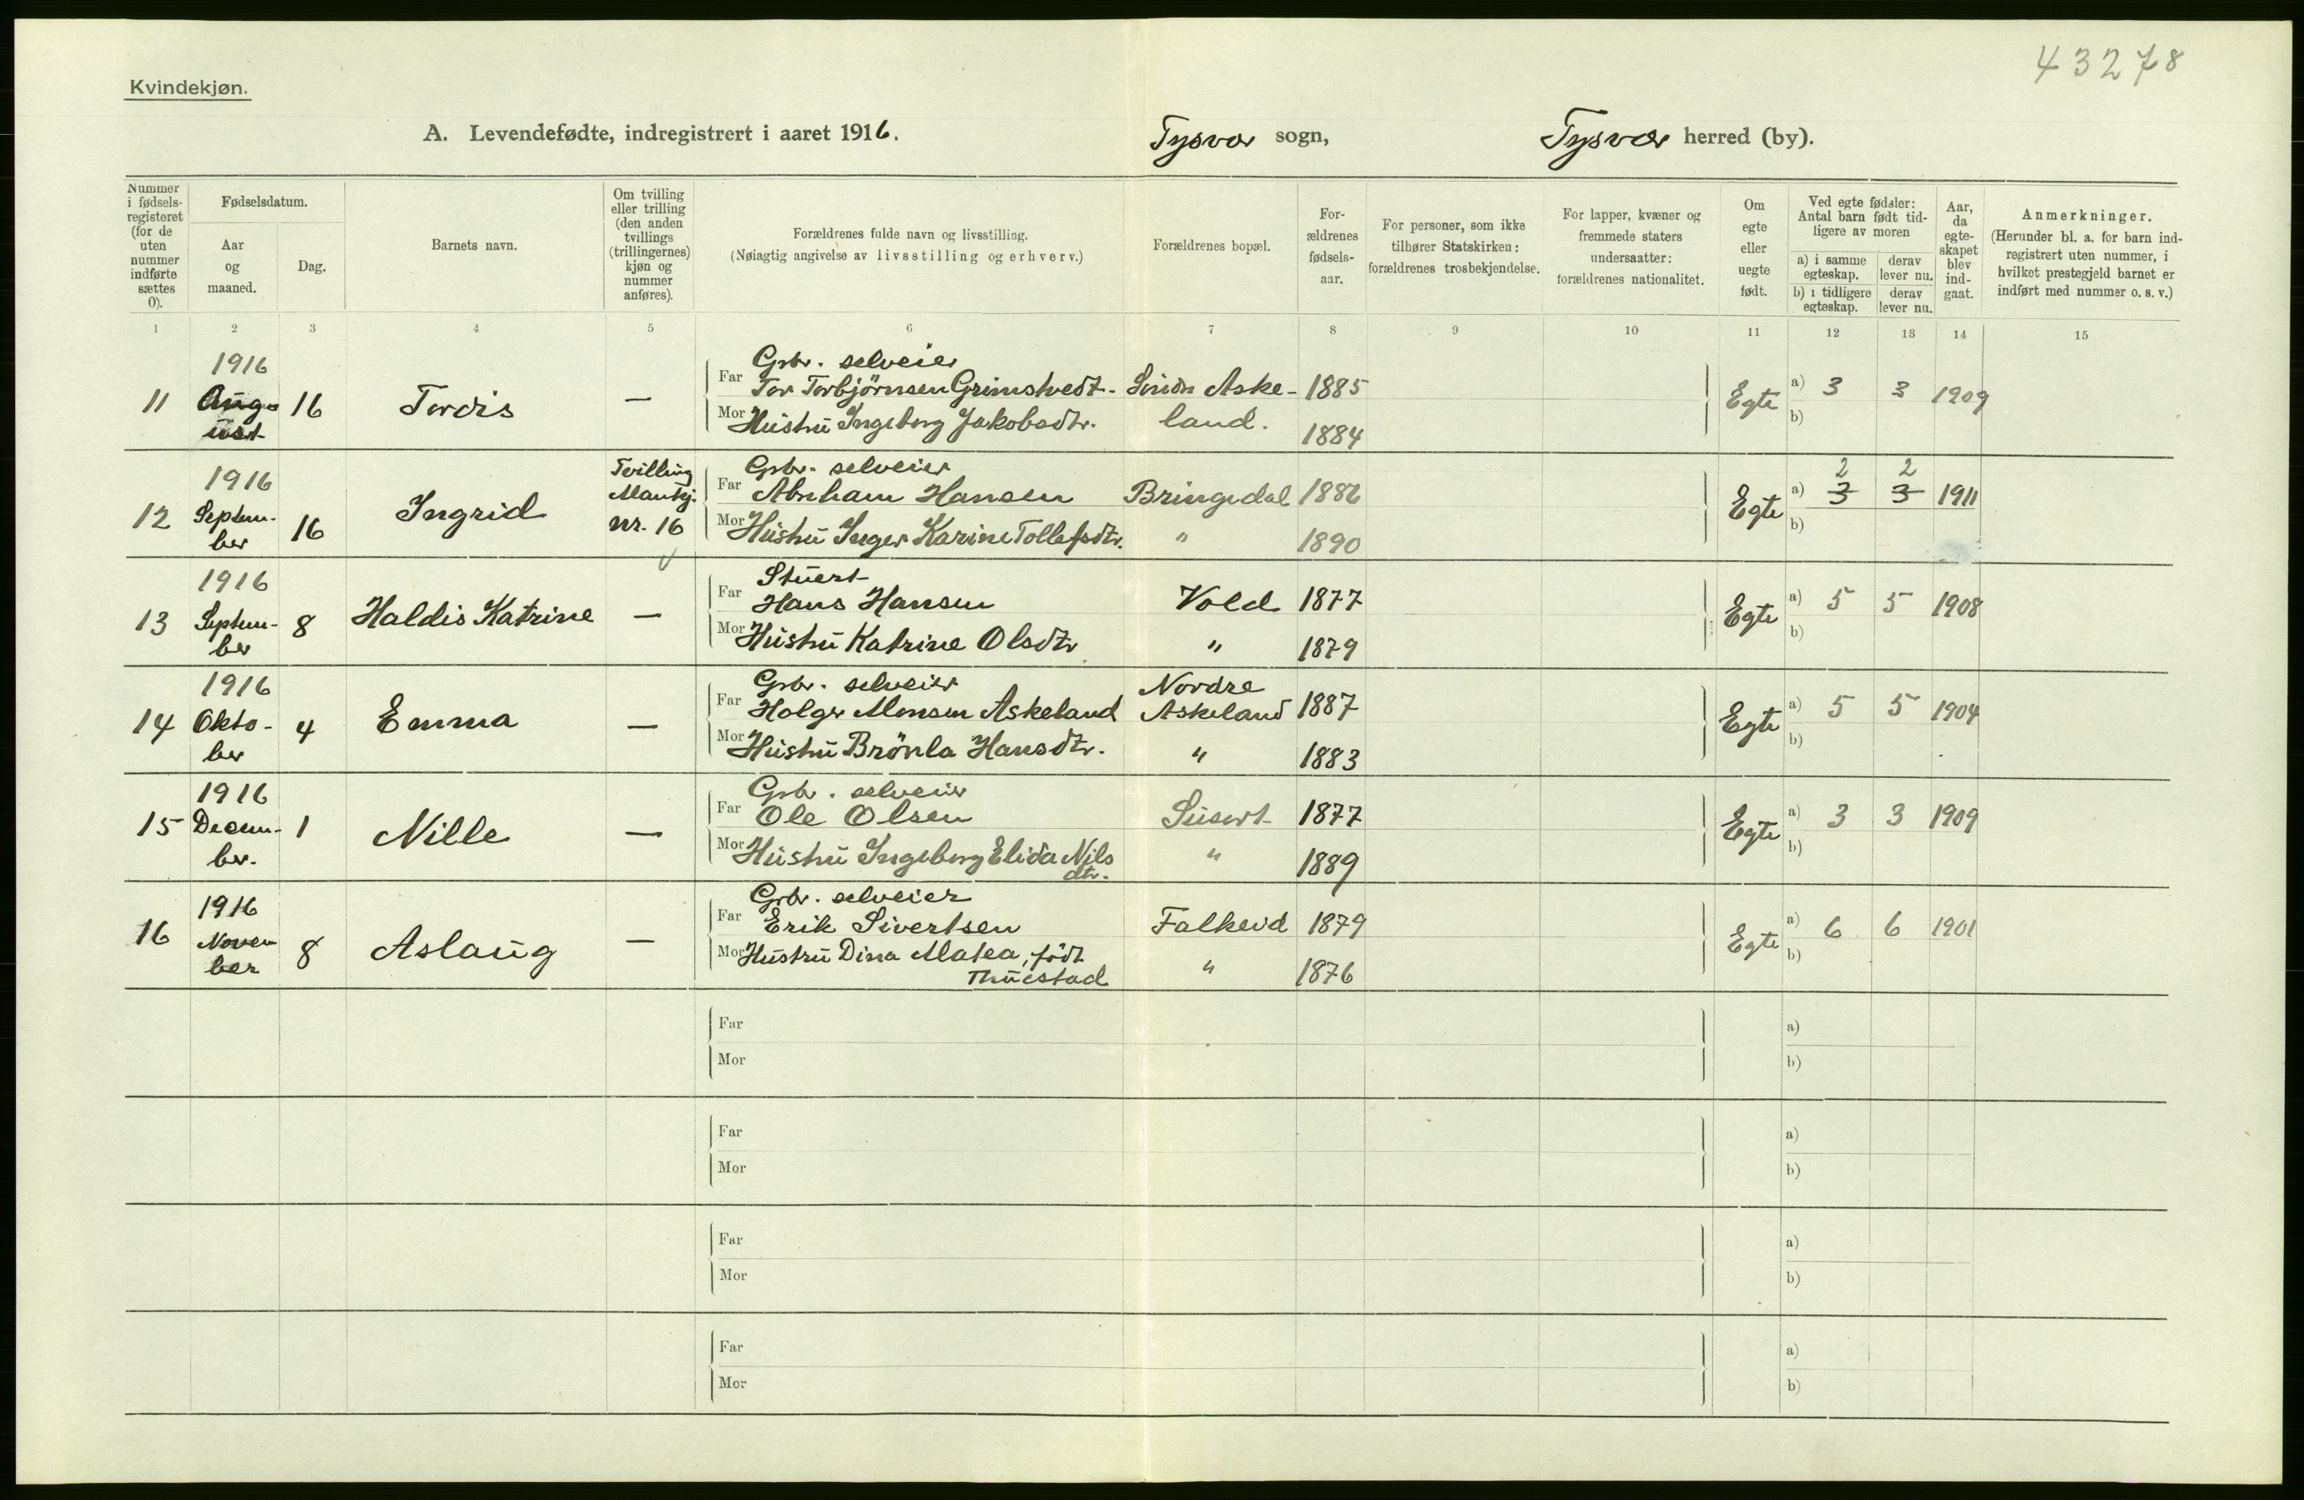 43278
Kvindekjøn.
A. Levendefødte, indregistrert i aaret 1916. Tysvær sogn, Tysvær herred (by).
Nummer i fødselsregisteret (for de uten nummer indførte sættes 0).
Fødselsdatum.
Aar og maaned.
Dag.
Barnets navn.
Om tvilling eller trilling (den anden tvillings (trillingernes) kjøn og nummer anføres).
Forældrenes fulde navn og livsstilling.
(Nøiagtig angivelse av livsstilling og erhverv.)
Forældrenes bopæl.
Forældrenes fødselsaar.
For personer, som ikke tilhører Statskirken: forældrenes trosbekjendelse.
For lapper, kvæner og fremmede staters undersaatter: forældrenes nationalitet.
Om egte eller uegte født.
Ved egte fødsler: Antal barn født tidligere av moren
a) i samme egteskap.
derav lever nu.
b) i tidligere egteskap.
derav lever nu.
Aar, da egteskapet blev indgaat.
Anmerkninger.
(Herunder bl. a. for barn indregistrert uten nummer, i hvilket prestegjeld barnet er indført med nummer o. s. v.)
1 2 3 4 5 6 7 8 9 10 11 12 13 14 15
1916 Grbr. selveier
11 August 16 Tordis — Far Tor Torbjörnsen Grimstvedt Söndr Aske- 1885 Egte a) 3 3 1909
Mor Hustru Ingeborg Jakobsdtr. land. 1884 b)
1916 Tvilling Grbr. selveier 2 2
12 September 16 Ingrid Mankj. nr. 16 Far Abraham Hansen Bringedal 1886 Egte a) 3 3 1911
Mor Hustru Inger Karine Tollefsdtr. " 1890 b)
1916 Stuert
13 September 8 Haldis Katrine — Far Hans Hansen Vold 1877 Egte a) 5 5 1908
Mor Hustru Katrine Olsdtr " 1879 b)
1916 Grbr. selveier Nordre
14 Oktober 4 Emma — Far Holger Monsen Askeland Askeland 1887 Egte a) 5 5 1904
Mor Hustru Brönla Hansdtr. " 1883 b)
1916 Grbr. selveier
15 December. 1 Nille — Far Ole Olsen Susort 1877 Egte a) 3 3 1909
Mor Hustru Ingeborg Elida Nils dtr. " 1889 b)
1916 Grbr. selveier
16 November 8 Aslaug — Far Erik Sivertsen Falkeid 1879 Egte a) 6 6 1901
Mor Hustru Dina Matea, födt Thuestad " 1876 b)
Far a)
Mor b)
Far a)
Mor b)
Far a)
Mor b)
Far a)
Mor b)